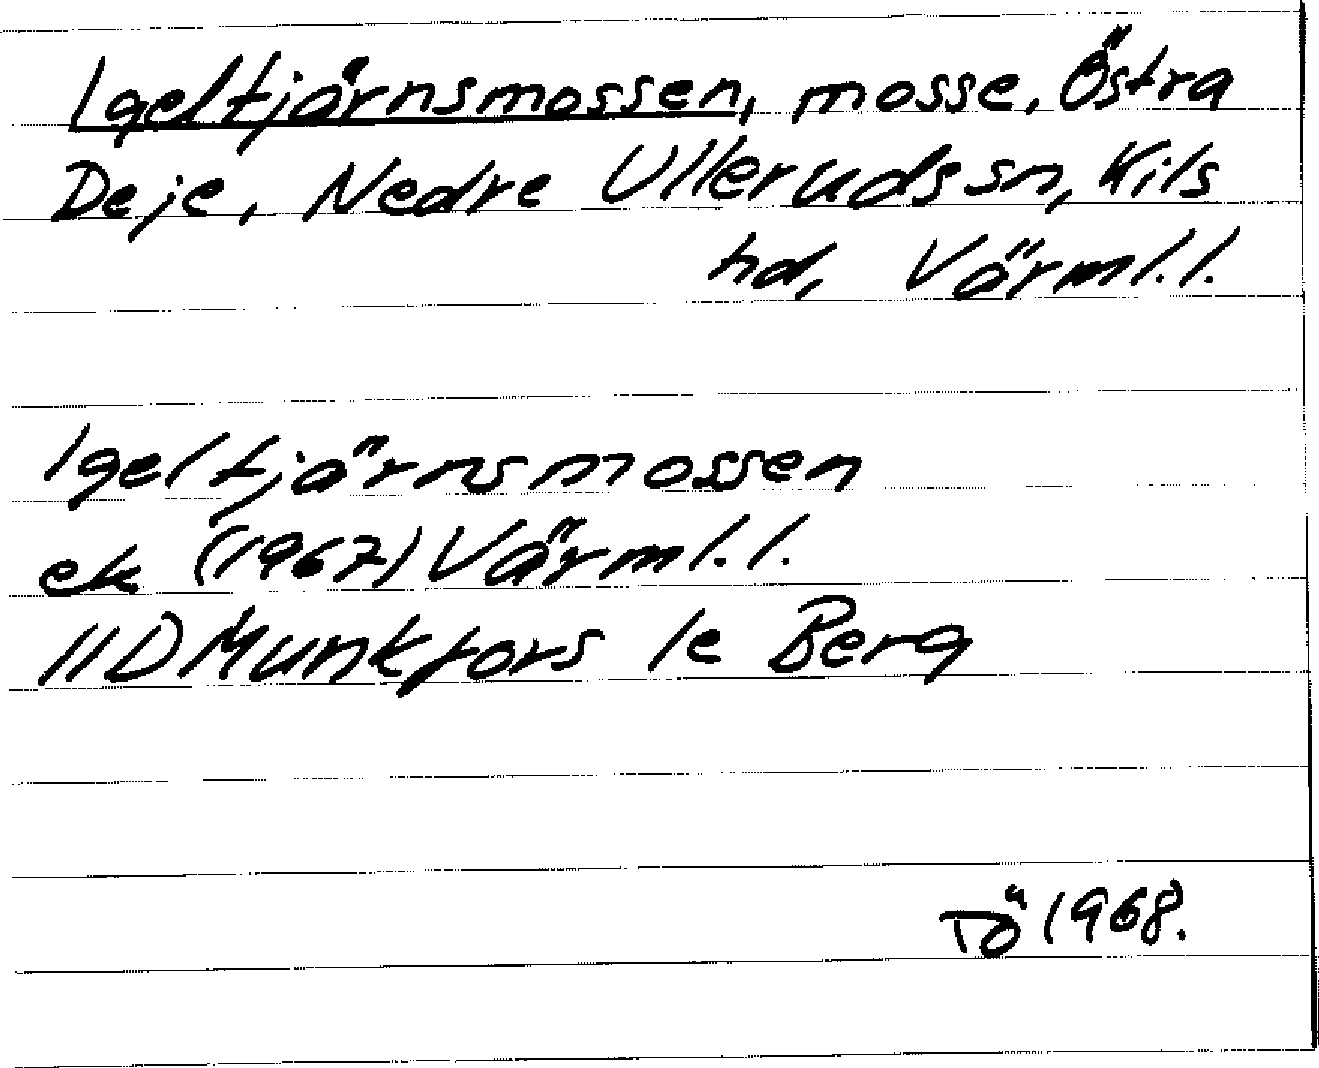 Igeltjärnsmossen, mosse, Östra
Deje, Nedre Ulleruds sn, Kils
hd, Värml. l.
Igeltjärnsmossen
ek (1967) Värml. l.
11D Munkfors 1e Berg
Tö 1968.